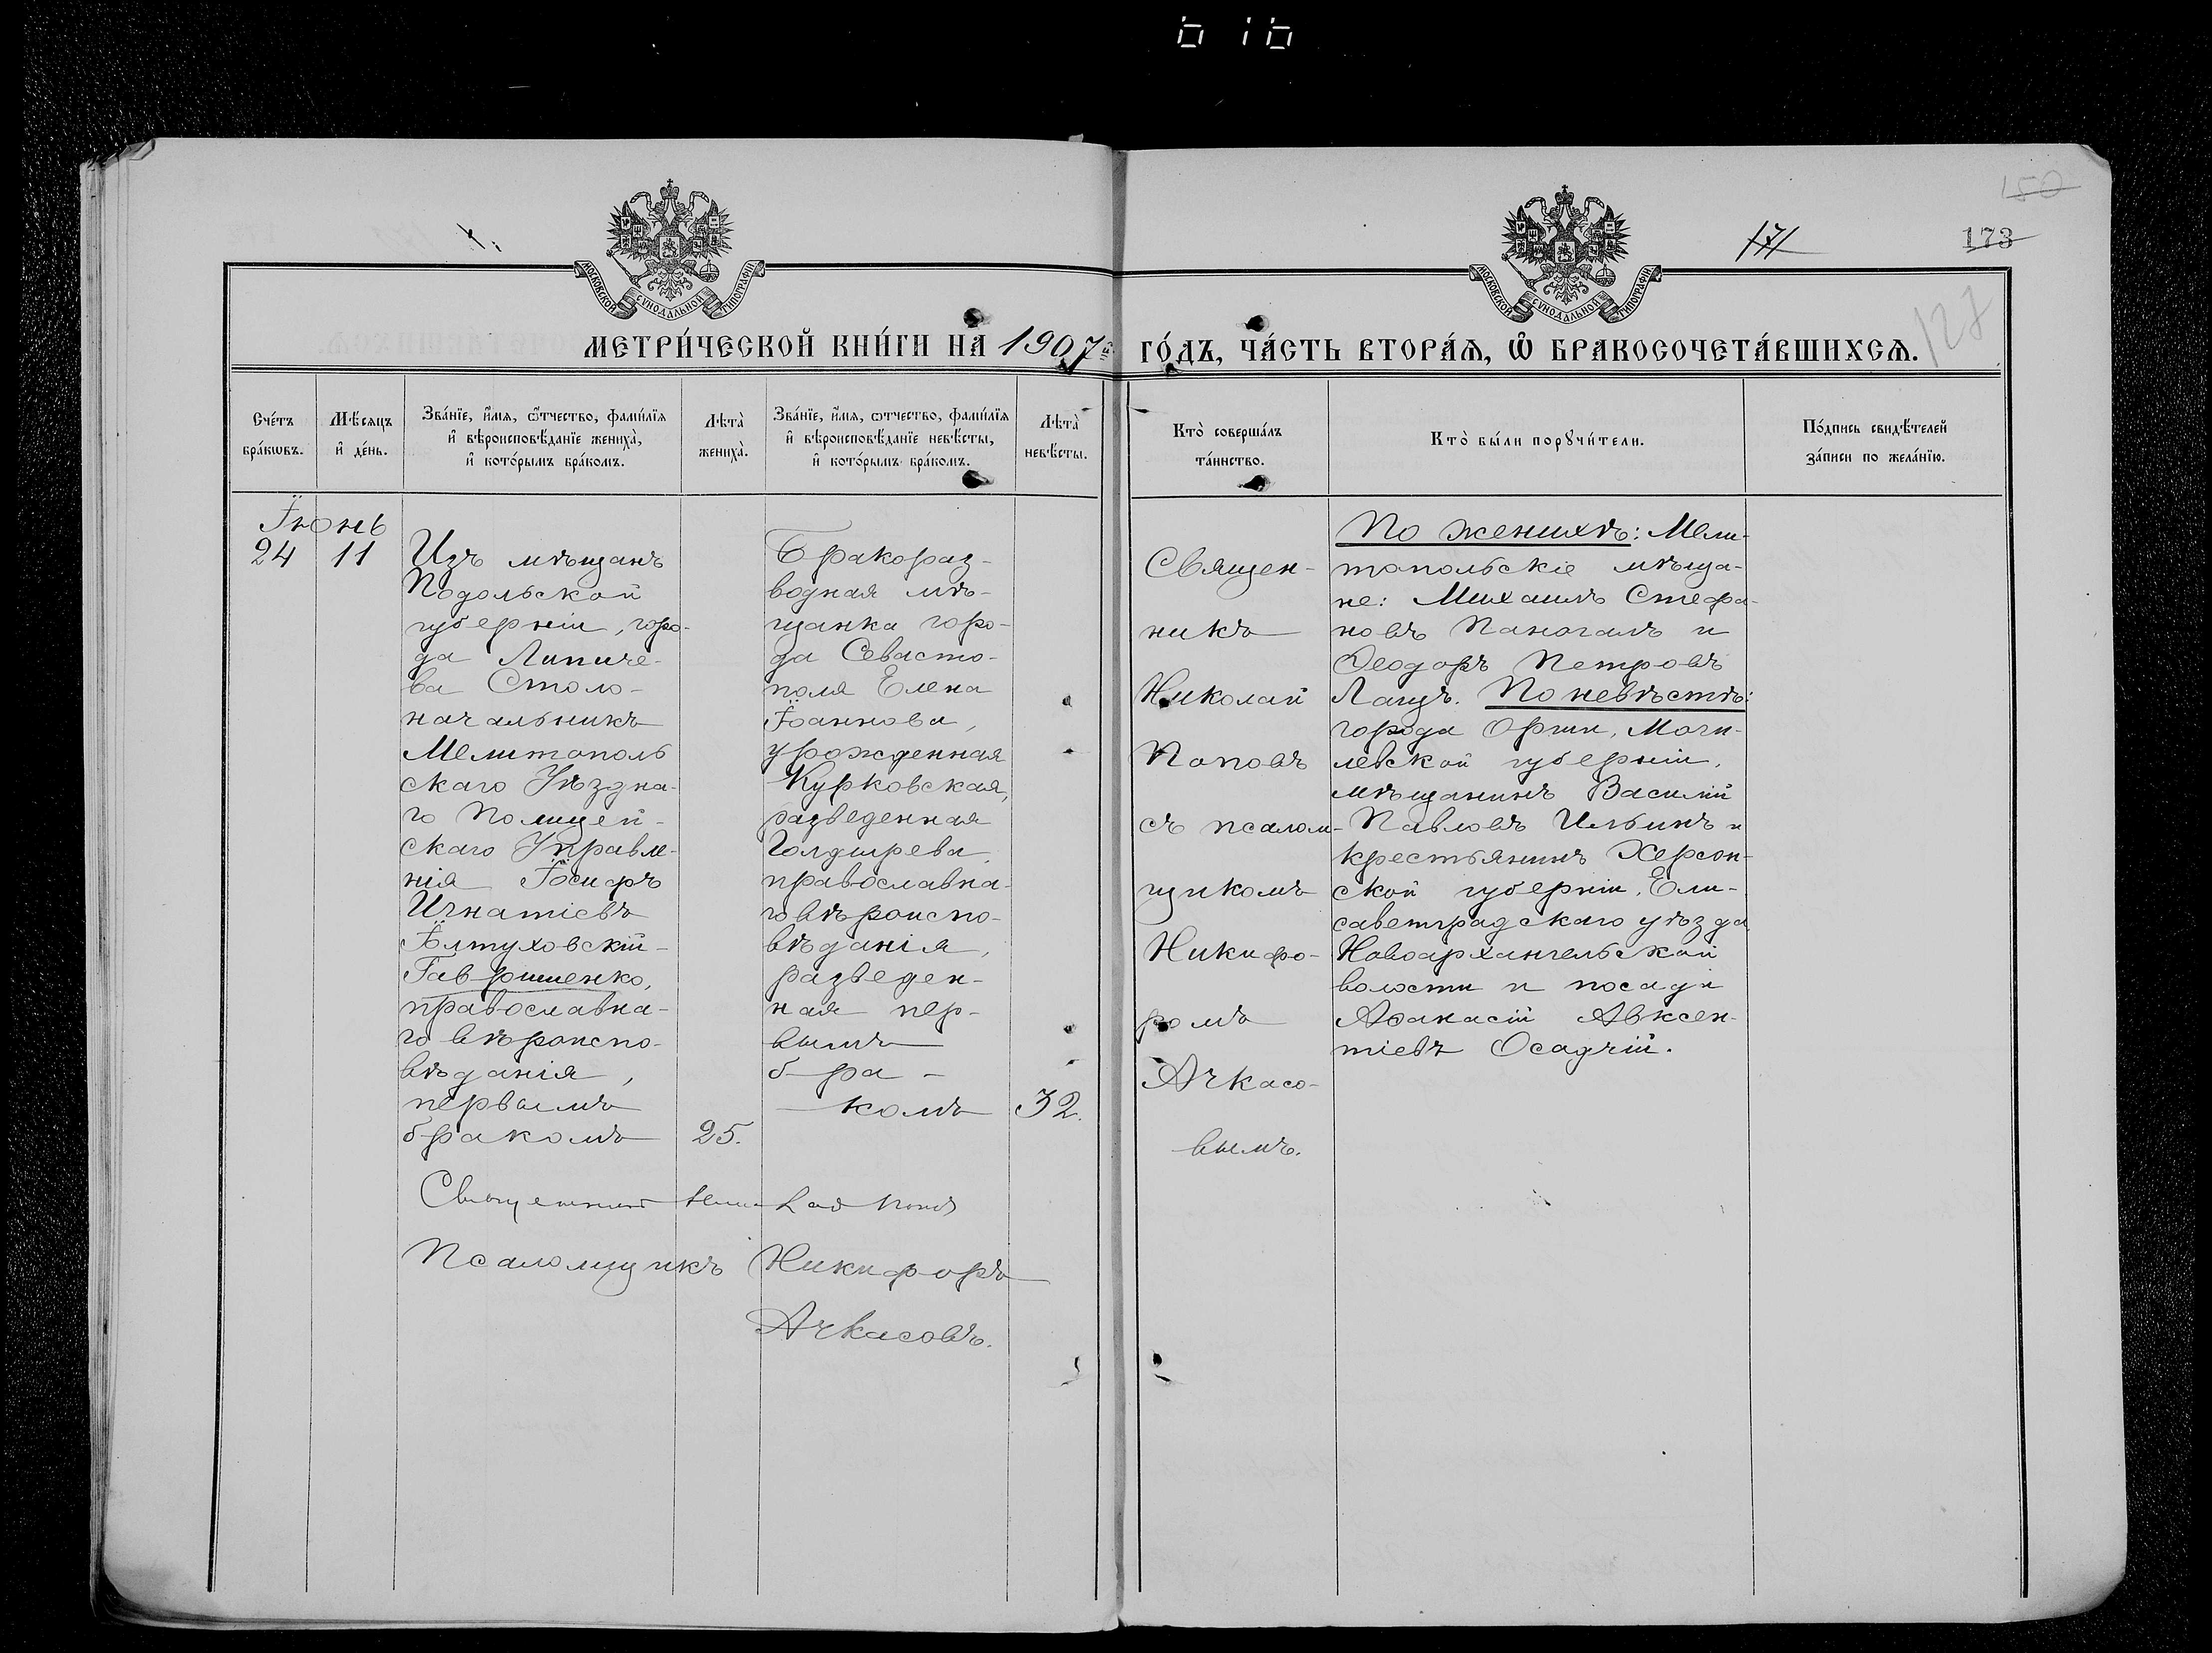 171
150
173
127
МОСКОВСКОЙ СѴНОДАЛЬНОЙ ТИПОГРАФІИ
МОСКОВСКОЙ СѴНОДАЛЬНОЙ ТИПОГРАФІИ
МЕТРИ́ЧЕСКОЙ КНИ́ГИ НА 1907 ГО́ДЪ, ЧА́СТЬ ВТОРА́Ѧ, Ѽ БРАКОСОЧЕТА́ВШИХСѦ.
Сче́тъ
бра́кѡвъ.
Мѣ́сѧцъ
и҆ де́нь.
Зва́нїе, и҆́мѧ, ѻ҆́тчество, фами́лїѧ
и҆ вѣроисповѣ́данїе жениха̀,
и҆ кото́рымъ бра́комъ.
Лѣта̀
жениха̀.
Зва́нїе, и҆́мѧ, ѻ҆́тчество, фами́лїѧ
и҆ вѣроисповѣ́данїе невѣ́сты,
и҆ кото́рымъ бра́комъ.
Лѣта̀
невѣ́сты.
Кто̀ соверша́лъ
та́инство.
Кто̀ бы́ли порꙋчи́тели.
По́дпись свидѣ́телей
за́писи по жела́нїю.
Іюнь
24
11
Изъ мѣщанъ
Подольской
губерніи, горо-
да Литиче-
ва Столо-
начальникъ
Мелитополь
скаго Уѣздна-
го Полицей-
скаго Управле-
нія Іосифъ
Игнатіевъ
Алтуховскій-
Гавришенко,
православна-
го вѣроиспо-
вѣданія,
первымъ
бракомъ
25.
Бракораз-
водная мѣ-
щанка горо-
да Севасто-
поля Елена
Іоаннова,
урожденная
Курковская,
разведенная
Голдырева,
православна-
го вѣроиспо-
вѣданія,
разведен-
ная пер-
вымъ
бра-
комъ
32.
Священ-
никъ
Николай
Поповъ
съ псалом-
щикомъ
Никифо-
ромъ
Ачкасо-
вымъ.
По женихѣ: Мели-
топольскіе мѣща-
не: Михаилъ Стефа-
новъ Паногалъ и
Ѳеодоръ Петровъ
Лащъ. По невѣстѣ:
города Орши, Моги-
левской губерніи,
мѣщанинъ Василій
Павловъ Ильинъ и
крестьянинъ Херсон-
ской губерніи, Ели-
саветградскаго уѣзда
Новоархангельской
волости и посада
Аѳанасій Авксен-
тіевъ Осадчій.
Священникъ Николай Поповъ
Псаломщикъ Никифоръ
Ачкасовъ.